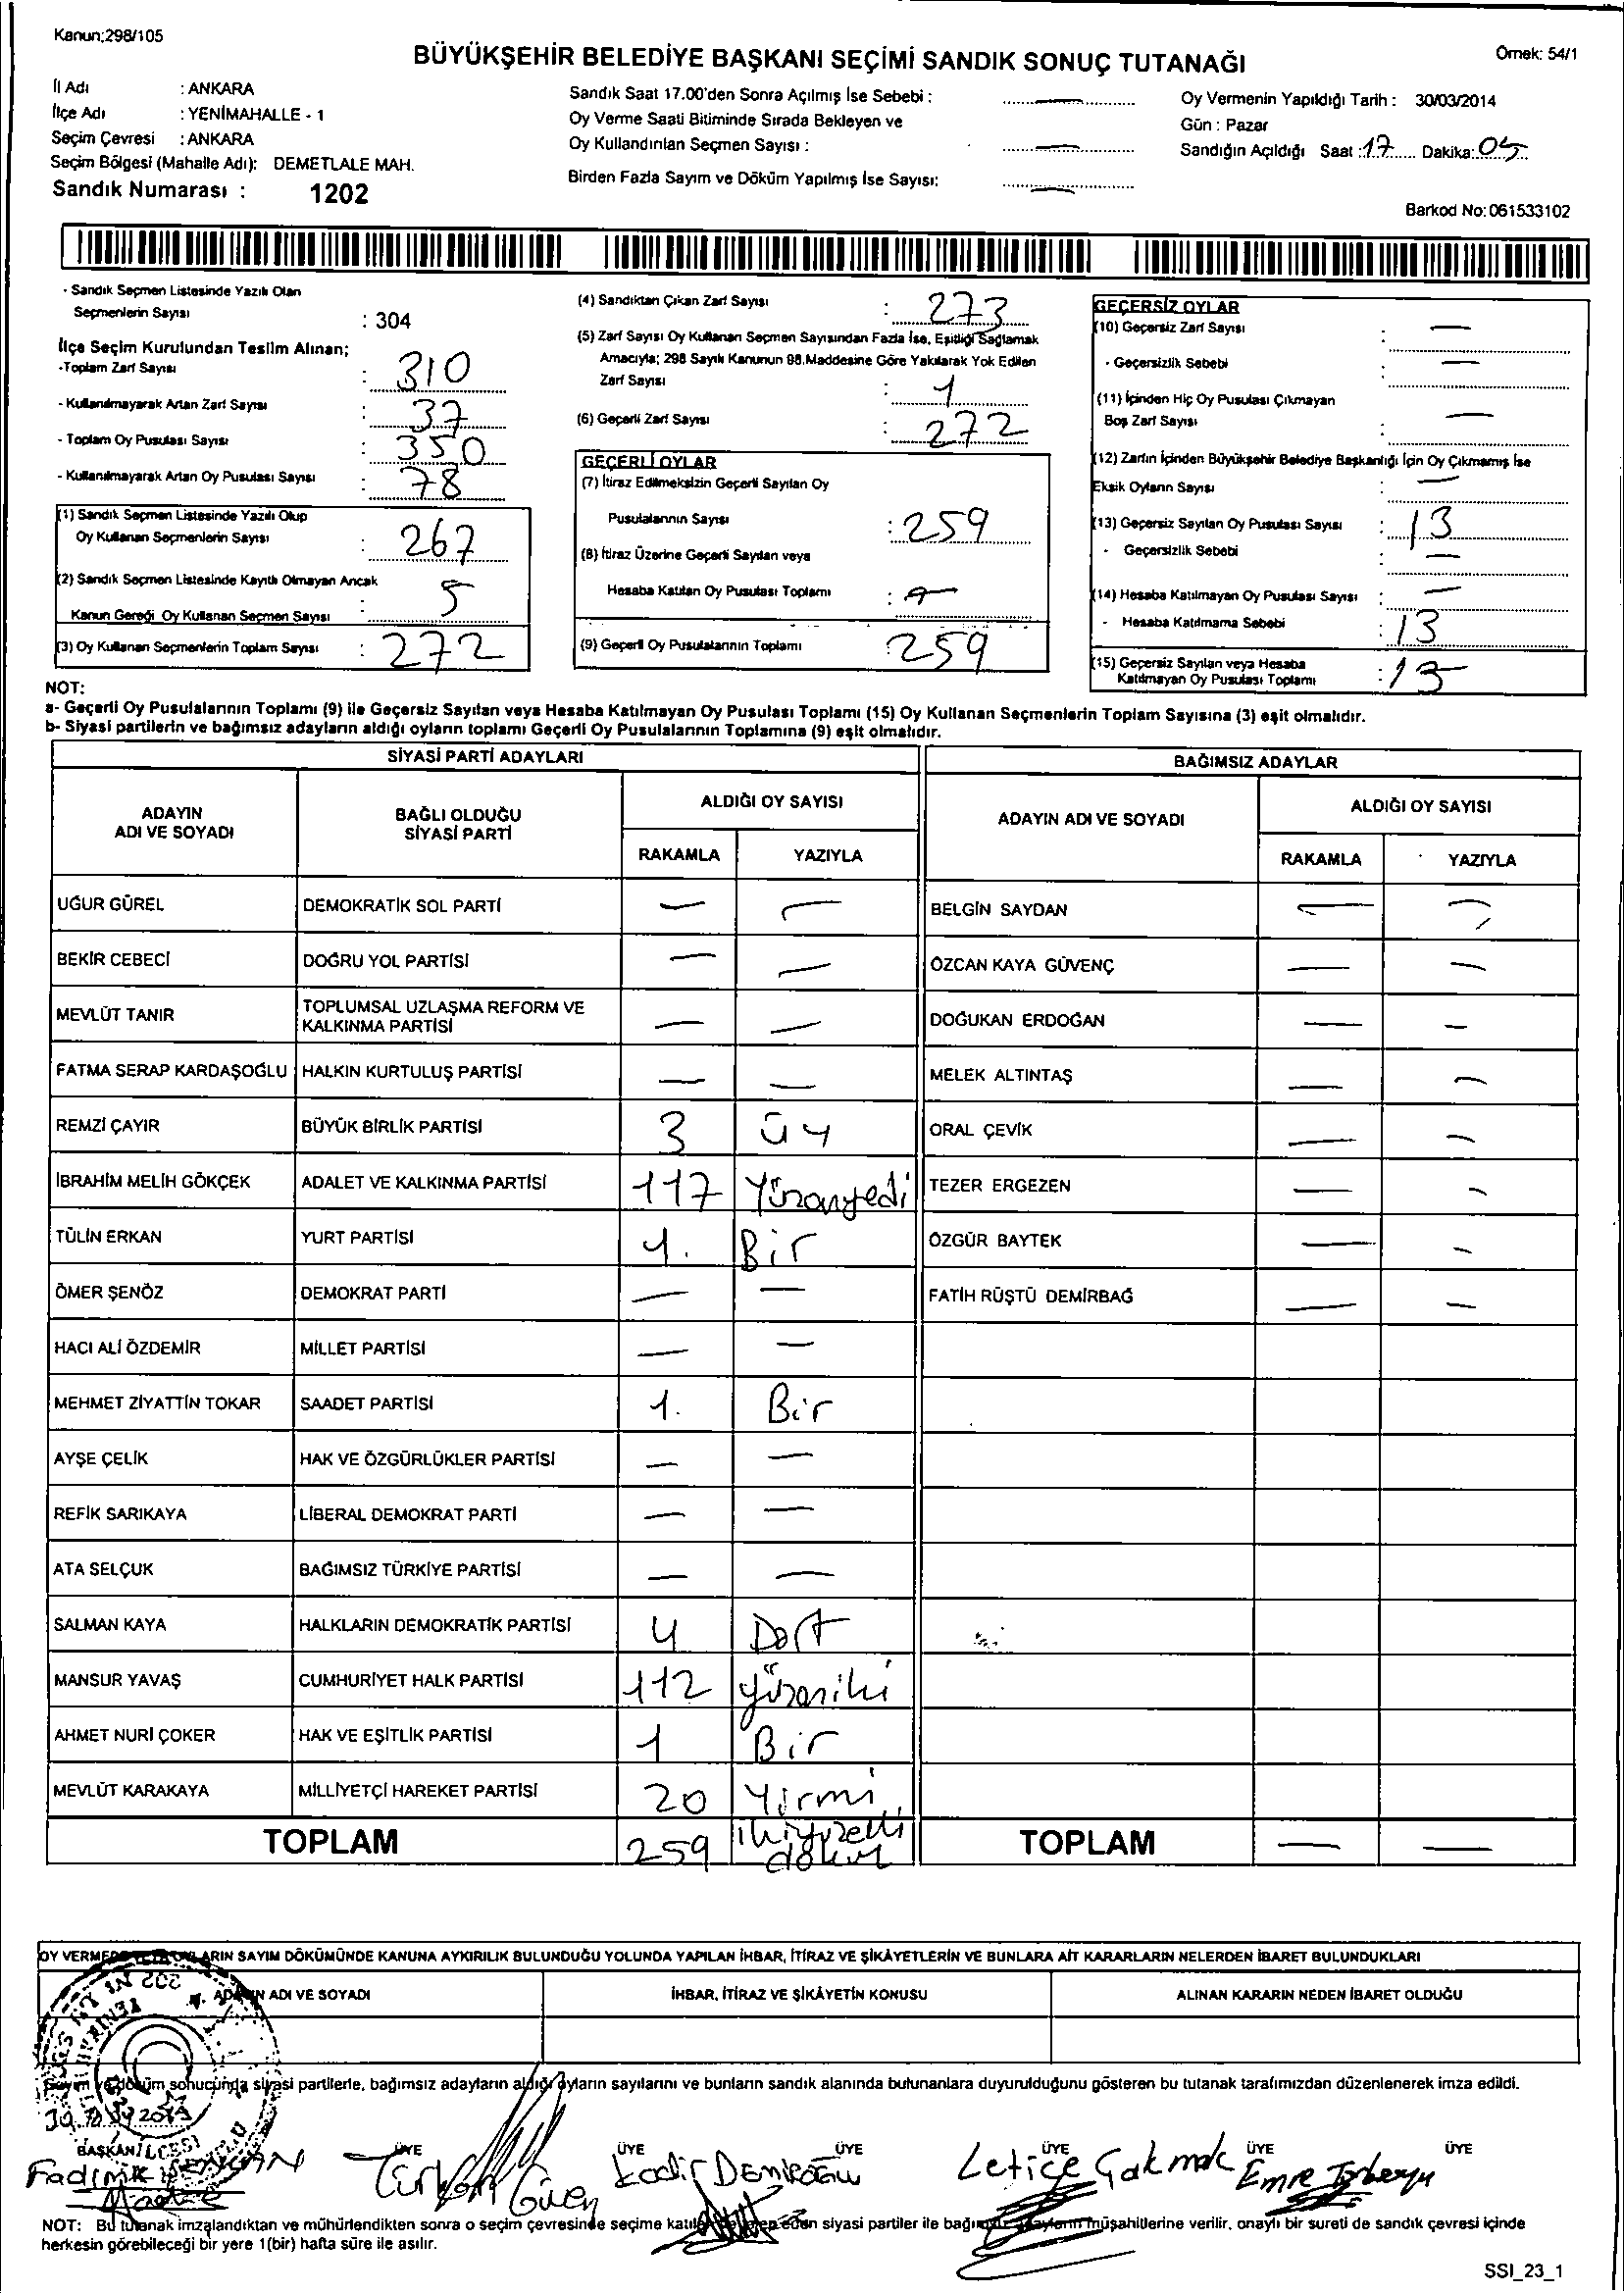 Kanun;298/105
BÜYÜKŞEHİR BELEDİYE BAŞKANI SEÇİMİ SANDIK SONUÇ TUTANAĞI
Örnek: 54/1
İl Adı : ANKARA
İlçe Adı : YENİMAHALLE - 1
Seçim Çevresi : ANKARA
Seçim Bölgesi (Mahalle Adı): DEMETLALE MAH.
Sandık Numarası : 1202
Sandık Saat 17.00'den Sonra Açılmış İse Sebebi : —
Oy Verme Saati Bitiminde Sırada Bekleyen ve
Oy Kullandırılan Seçmen Sayısı : —
Birden Fazla Sayım ve Döküm Yapılmış İse Sayısı: —
Oy Vermenin Yapıldığı Tarih : 30/03/2014
Gün : Pazar
Sandığın Açıldığı Saat : 17 Dakika: 05
Barkod No: 061533102
- Sandık Seçmen Listesinde Yazılı Olan
Seçmenlerin Sayısı : 304
İlçe Seçim Kurulundan Teslim Alınan;
-Toplam Zarf Sayısı : 310
- Kullanılmayarak Artan Zarf Sayısı : 37
- Toplam Oy Pusulası Sayısı : 350
- Kullanılmayarak Artan Oy Pusulası Sayısı : 78
(1) Sandık Seçmen Listesinde Yazılı Olup
Oy Kullanan Seçmenlerin Sayısı : 267
(2) Sandık Seçmen Listesinde Kayıtlı Olmayan Ancak
Kanun Gereği Oy Kullanan Seçmen Sayısı : 5
(3) Oy Kullanan Seçmenlerin Toplam Sayısı : 272
(4) Sandıktan Çıkan Zarf Sayısı : 273
(5) Zarf Sayısı Oy Kullanan Seçmen Sayısından Fazla İse, Eşitliği Sağlamak
Amacıyla; 298 Sayılı Kanunun 98.Maddesine Göre Yakılarak Yok Edilen
Zarf Sayısı : 1
(6) Geçerli Zarf Sayısı : 272
GEÇERLİ OYLAR
(7) İtiraz Edilmeksizin Geçerli Sayılan Oy
Pusulalarının Sayısı : 259
(8) İtiraz Üzerine Geçerli Sayılan veya
Hesaba Katılan Oy Pusulası Toplamı : —
(9) Geçerli Oy Pusulalarının Toplamı : 259
GEÇERSİZ OYLAR
(10) Geçersiz Zarf Sayısı : —
- Geçersizlik Sebebi : —
(11) İçinden Hiç Oy Pusulası Çıkmayan
Boş Zarf Sayısı : —
(12) Zarfın İçinden Büyükşehir Belediye Başkanlığı İçin Oy Çıkmamış İse
Eksik Oyların Sayısı : —
(13) Geçersiz Sayılan Oy Pusulası Sayısı : 13
- Geçersizlik Sebebi : —
(14) Hesaba Katılmayan Oy Pusulası Sayısı : —
- Hesaba Katılmama Sebebi : 13
(15) Geçersiz Sayılan veya Hesaba
Katılmayan Oy Pusulası Toplamı : 13
NOT:
a- Geçerli Oy Pusulalarının Toplamı (9) ile Geçersiz Sayılan veya Hesaba Katılmayan Oy Pusulası Toplamı (15) Oy Kullanan Seçmenlerin Toplam Sayısına (3) eşit olmalıdır.
b- Siyasi partilerin ve bağımsız adayların aldığı oyların toplamı Geçerli Oy Pusulalarının Toplamına (9) eşit olmalıdır.
SİYASİ PARTİ ADAYLARI
ADAYIN ADI VE SOYADI
BAĞLI OLDUĞU SİYASİ PARTİ
ALDIĞI OY SAYISI
RAKAMLA YAZIYLA
UĞUR GÜREL DEMOKRATİK SOL PARTİ — —
BEKİR CEBECİ DOĞRU YOL PARTİSİ — —
MEVLÜT TANIR TOPLUMSAL UZLAŞMA REFORM VE KALKINMA PARTİSİ — —
FATMA SERAP KARDAŞOĞLU HALKIN KURTULUŞ PARTİSİ — —
REMZİ ÇAYIR BÜYÜK BİRLİK PARTİSİ 3 üç
İBRAHİM MELİH GÖKÇEK ADALET VE KALKINMA PARTİSİ 117 Yüzonyedi
TÜLİN ERKAN YURT PARTİSİ 1. Bir
ÖMER ŞENÖZ DEMOKRAT PARTİ — —
HACI ALİ ÖZDEMİR MİLLET PARTİSİ — —
MEHMET ZİYATTİN TOKAR SAADET PARTİSİ 1. Bir
AYŞE ÇELİK HAK VE ÖZGÜRLÜKLER PARTİSİ — —
REFİK SARIKAYA LİBERAL DEMOKRAT PARTİ — —
ATA SELÇUK BAĞIMSIZ TÜRKİYE PARTİSİ — —
SALMAN KAYA HALKLARIN DEMOKRATİK PARTİSİ 4 Dört
MANSUR YAVAŞ CUMHURİYET HALK PARTİSİ 112 yüzoniki
AHMET NURİ ÇOKER HAK VE EŞİTLİK PARTİSİ 1 Bir
MEVLÜT KARAKAYA MİLLİYETÇİ HAREKET PARTİSİ 20 Yirmi
TOPLAM 259 ikiyüzelli dokuz
BAĞIMSIZ ADAYLAR
ADAYIN ADI VE SOYADI
ALDIĞI OY SAYISI
RAKAMLA YAZIYLA
BELGİN SAYDAN — —
ÖZCAN KAYA GÜVENÇ — —
DOĞUKAN ERDOĞAN — —
MELEK ALTINTAŞ — —
ORAL ÇEVİK — —
TEZER ERGEZEN — —
ÖZGÜR BAYTEK — —
FATİH RÜŞTÜ DEMİRBAĞ — —
TOPLAM — —
OY VERME SAYIM DÖKÜMÜNDE KANUNA AYKIRILIK BULUNDUĞU YOLUNDA YAPILAN İHBAR, İTİRAZ VE ŞİKÂYETLERİN VE BUNLARA AİT KARARLARIN NELERDEN İBARET BULUNDUKLARI
ADI VE SOYADI
İHBAR, İTİRAZ VE ŞİKÂYETİN KONUSU
ALINAN KARARIN NEDEN İBARET OLDUĞU
Sayım ve döküm sonucunda siyasi partilerle, bağımsız adayların aldığı oyların sayılarını ve bunların sandık alanında bulunanlara duyurulduğunu gösteren bu tutanak tarafımızdan düzenlenerek imza edildi.
BAŞKAN ÜYE ÜYE ÜYE ÜYE ÜYE ÜYE
Güven Kadir Demiroğlu Letife Çakmak Emre
NOT: Bu tutanak imzalandıktan ve mühürlendikten sonra o seçim çevresinde seçime eden siyasi partiler ile müşahitlerine verilir, onaylı bir sureti de sandık çevresi içinde
herkesin görebileceği bir yere 1(bir) hafta süre ile asılır.
SSI_23_1